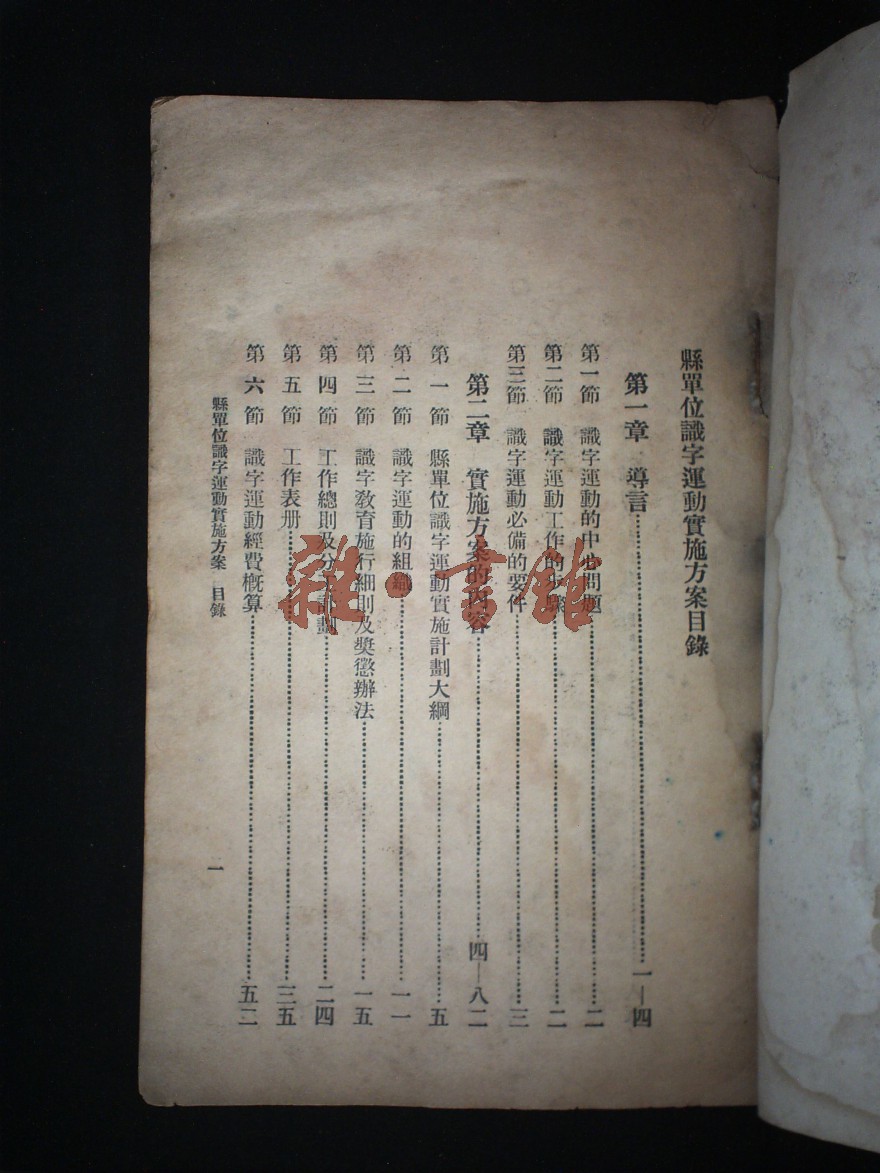 縣單位識字運動實施方案目錄
第一章 導言……一—四
第一節 識字運動的中心問題……二
第二節 識字運動工作的步驟……二
第三節 識字運動必備的要件……三
第二章 實施方案的內容……四—八二
第一節 縣單位識字運動實施計劃大綱……五
第二節 識字運動的組織……一一
第三節 識字教育施行細則及獎懲辦法……一五
第四節 工作總則及分工計劃……二四
第五節 工作表册……三五
第六節 識字運動經費概算……五二
縣單位識字運動實施方案 目錄
一
雜·書館